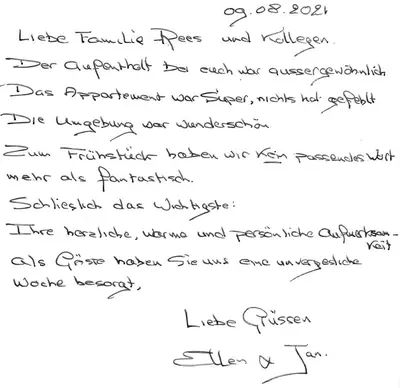 09.08.2021
Liebe Familie Rees und Kollegen.
Der Aufenthalt bei euch war aussergewöhnlich
Das Appartement war Super, nichts hat gefehlt
Die Umgebung war wunderschön
Zum Frühstück haben wir kein passendes Wort
mehr als fantastisch.
Schlieslich das Wichtigste:
Ihre herzliche, warme und persönliche Aufmerksam-
keit
als Gäste haben Sie uns eine unvergesliche
Woche besorgt,
Liebe Grüssen
Ellen & Jan.